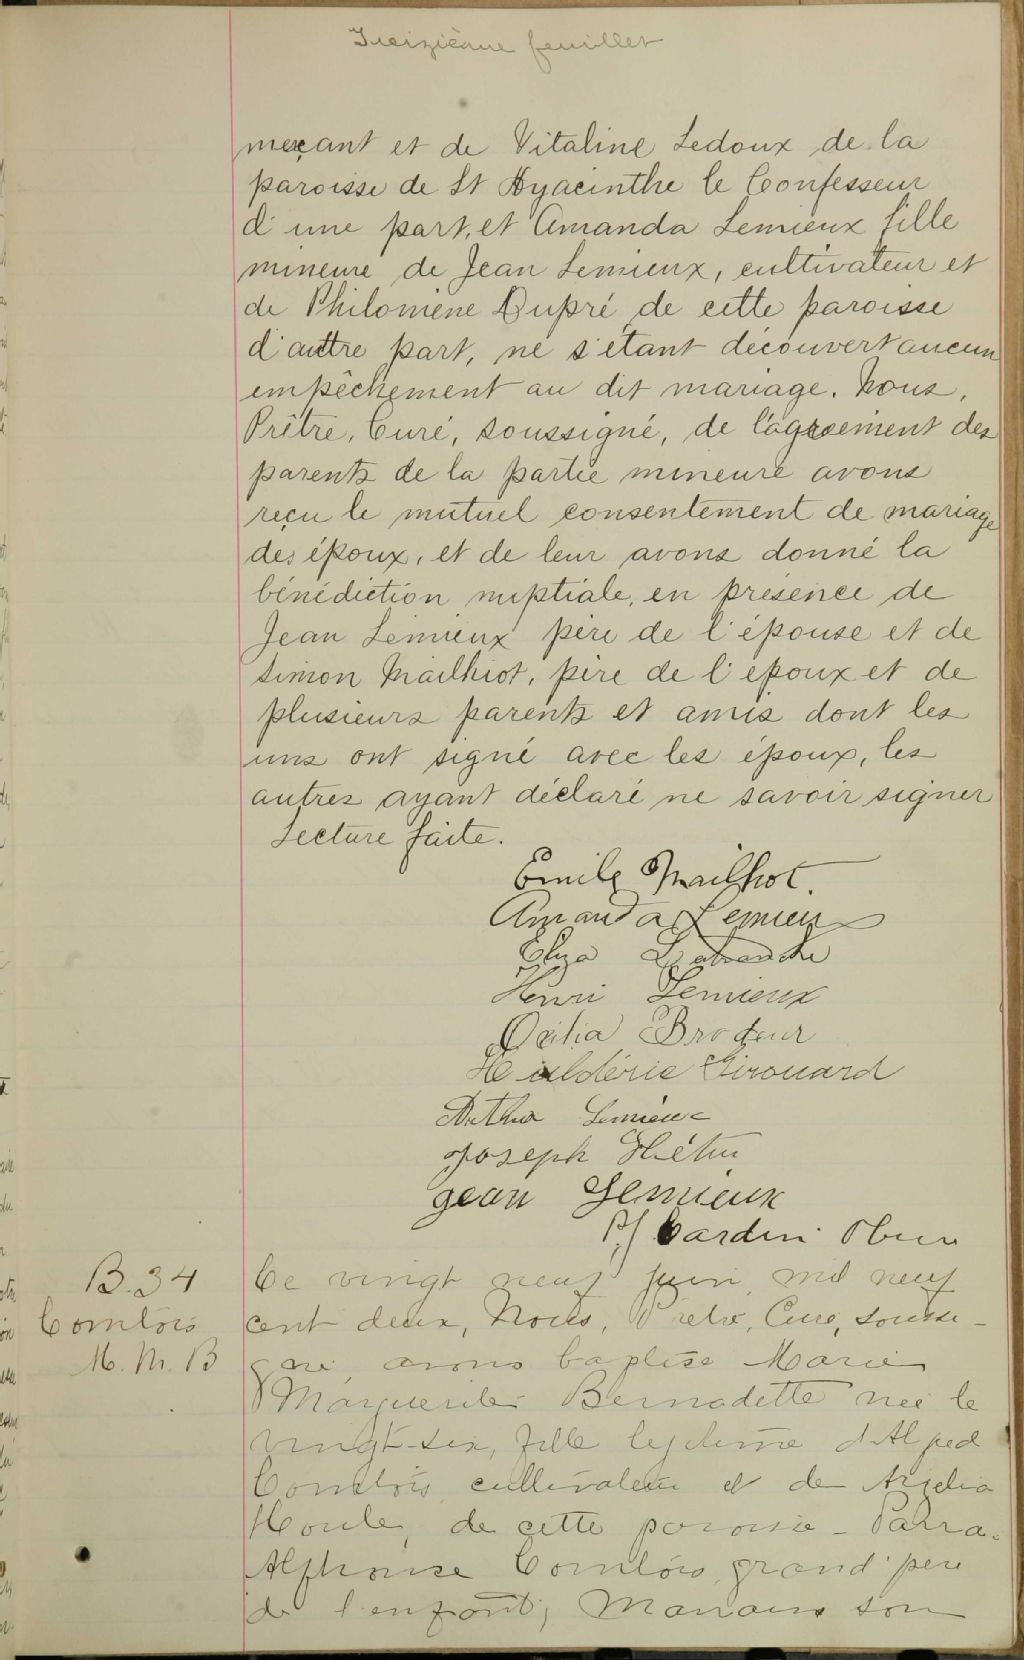 Treizième feuillet
meçant et de Vitaline Ledoux de la
paroisse de St Hyacinthe le Confesseur
d'une part, et Amanda Lemieux fille
mineure de Jean Lemieux, cultivateur et
de Philomène Dupré de cette paroisse
d'autre part, ne s'étant découvert aucun
empêchement au dit mariage. Nous,
Prêtre, Curé, soussigné, de l'agréement des
parents de la partie mineure avons
reçu le mutuel consentement de mariage
des époux, et de leur avons donné la
bénédiction nuptiale, en présence de
Jean Lemieux père de l'épouse et de
Simon Mailhiot, père de l'époux et de
plusieurs parents et amis dont les
uns ont signé avec les époux, les
autres ayant déclaré ne savoir signer
Lecture faite.
Emile Mailhot.
Amanda Lemieux
Eliza
Henri Lemieux
Brodeur
Girouard
Arthur Lemieux
Joseph Hétu
Jean Lemieux
P.J Cardin Ptre
B. 34
Comtois
M. M. B
Ce vingt neuf juin mil neuf
cent deux, Nous, Prêtre, Curé, soussi-
gné avons baptisé Marie
Marguerite Bernadette née le
vingt-six, fille légitime d'Alfred
Comtois cultivateur et de
Houle, de cette paroisse - Parra-
Alphonse Comtois grand'père
de l'enfant; Marraine son